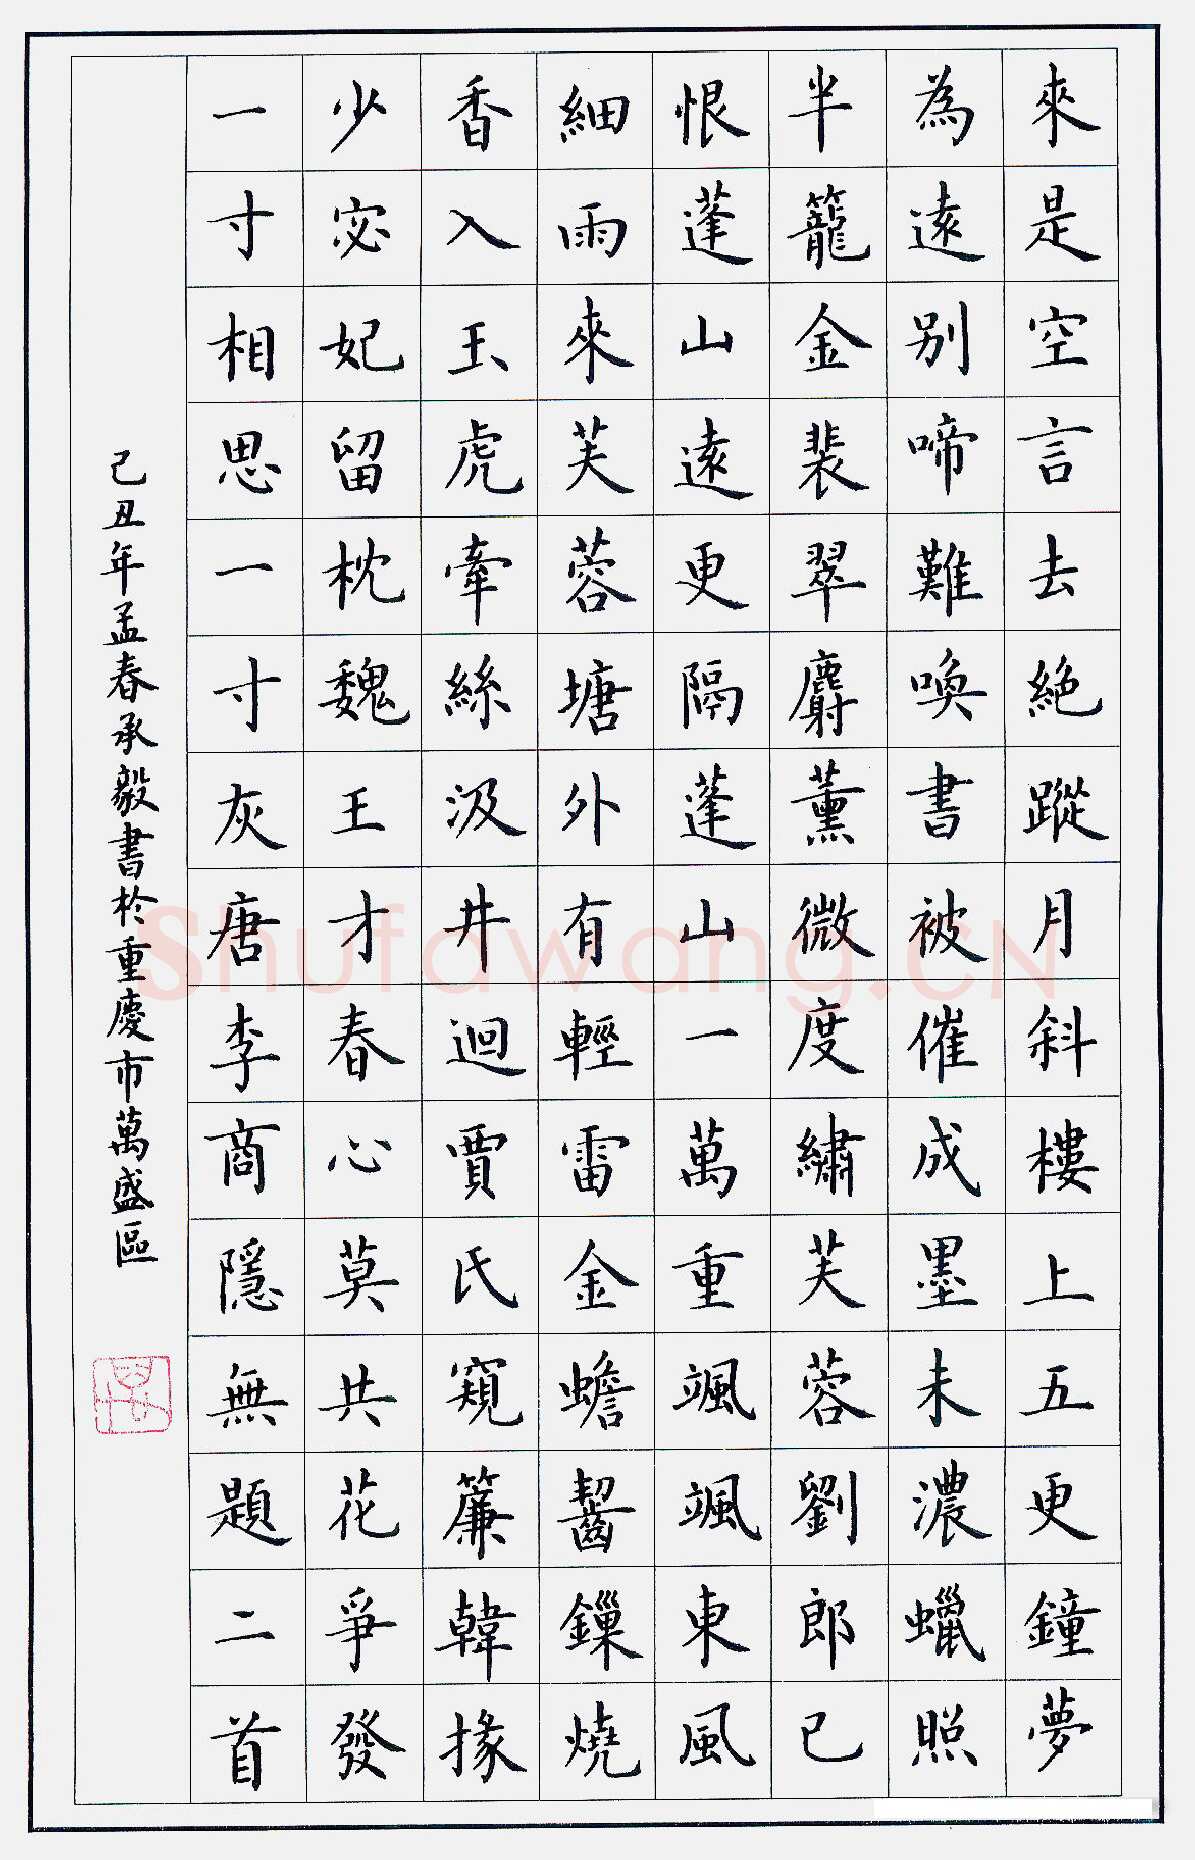 來是空言去絕蹤月斜樓上五更鐘夢
為遠別啼難喚書被催成墨未濃蠟照
半籠金裴翠麝薰微度繡芙蓉劉郎已
恨蓬山遠更隔蓬山一萬重颯颯東風
細雨來芙蓉塘外有輕雷金蟾齧鏁燒
香入玉虎牽絲汲井迴賈氏窺簾韓掾
少宓妃留枕魏王才春心莫共花爭發
一寸相思一寸灰唐李商隱無題二首
己丑年孟春承毅書於重慶市萬盛區
Shufawang.CN